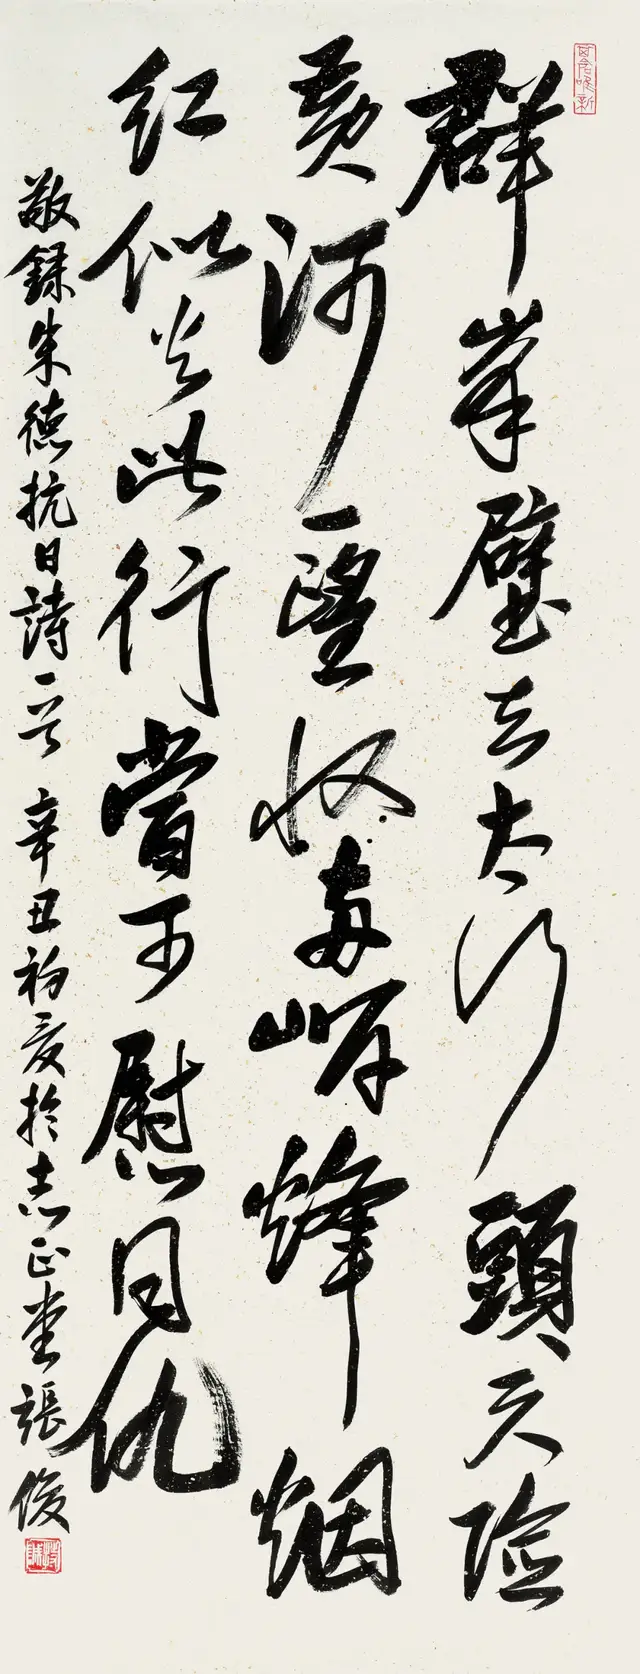 群峯壁立太行頭天险
黄河一望收两岸烽烟
红似火此行當可慰同仇
敬録朱德抗日詩一首 辛丑初夏於志正堂 張俊